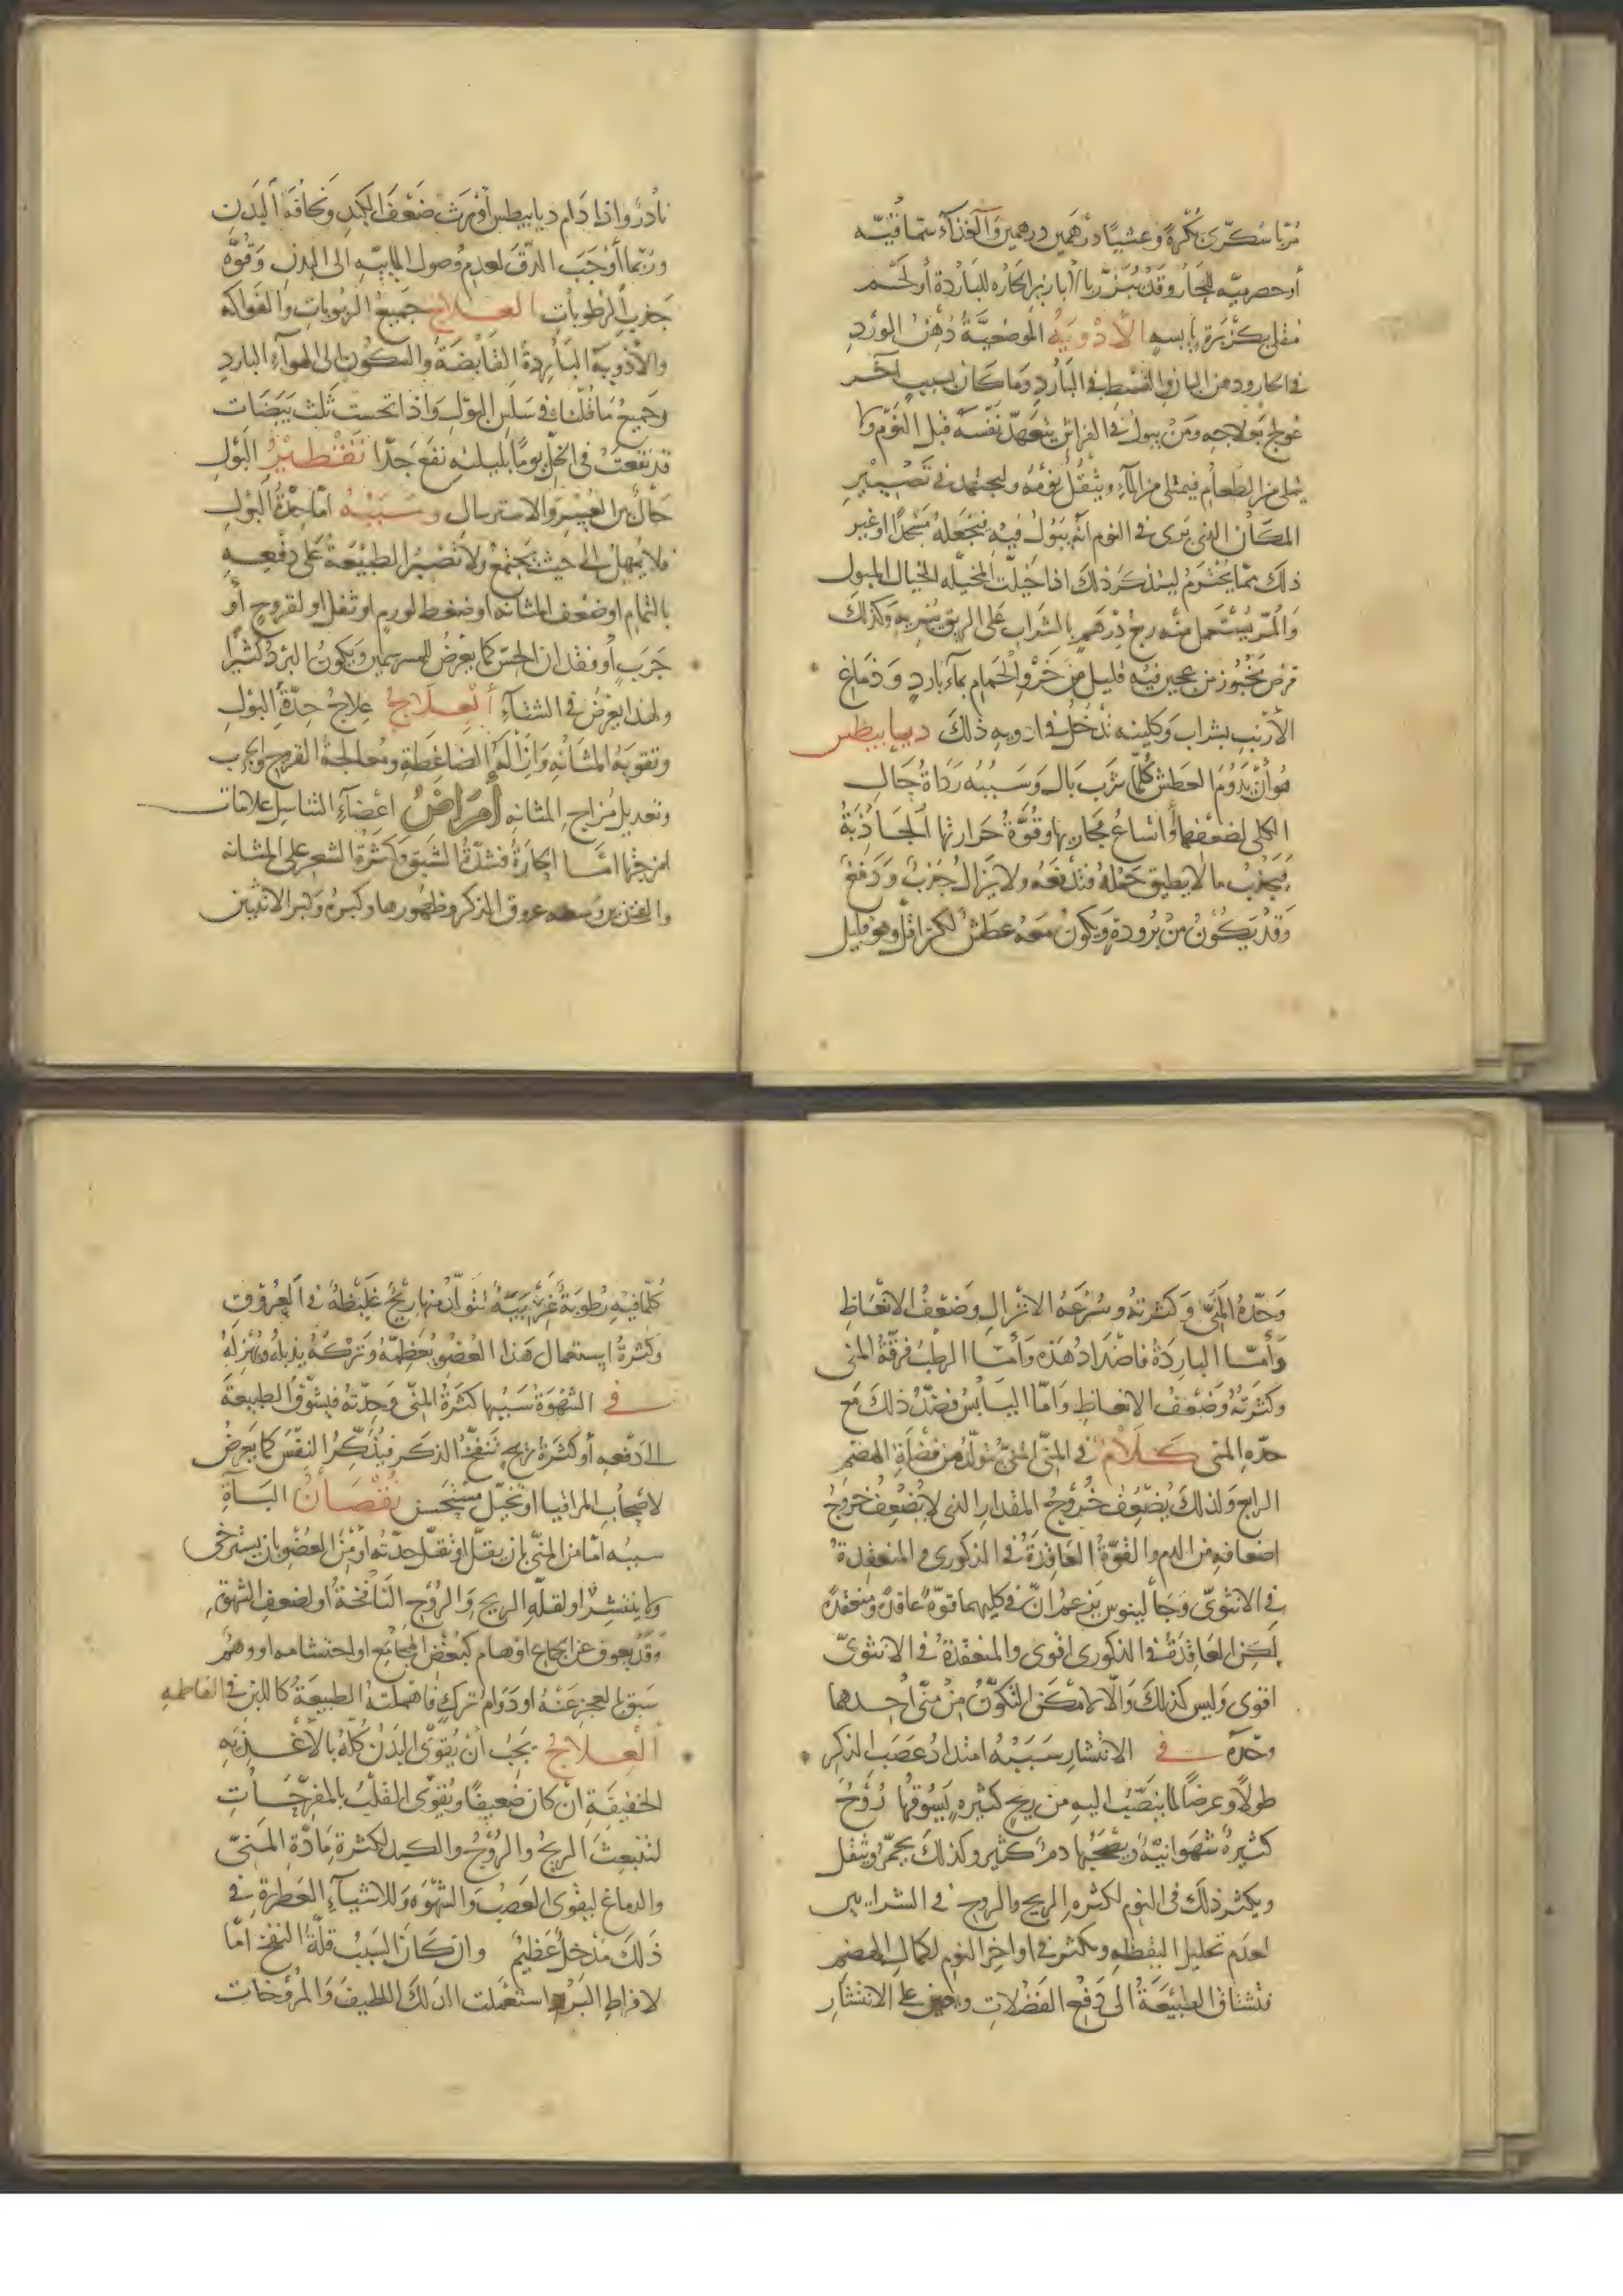 مربا سكرى بكرة وعشيا درهمين درهمين والغذاء سماقيه
أو حصرميه للحار وقد يبزر بالأبازير الحاره للباردة أو لحم
مقلى بكزبرة يابسه الأدوية الموضعية دهن الورد
فى الحار ودهن البان والقسط فى البارد وما كان بسبب آخر
عولج بعلاجه ومن يبول فى الفراش يتعهد نفسه قبل النوم ولا
يتملى من الطعام فيمتلى من الماء ويثقل نومه وليجتهد فى تصيير
المكان الذى يرى فى النوم أنه يبول فيه فيجعله مسجدا او غير
ذلك مما يحترم ليتذكر ذلك اذا خيلت المخيله الخيال المبول
والمر يستعمل منه ربع درهم بالشراب على الريق يبريه وكذلك
قرص مخبوز من عجين فيه قليل من خرو الحمام بماء بارد ودماغ
الأرنب بشراب وكليته تدخل فى ادويه ذلك ديابيطس
هو أن يدوم العطش كلما شرب بال وسببه رداة حال
الكلى لضعفها واتساع مجاريها وقوة حرارتها الجاذبة
فيجذب ما لا يطيق حمله فتدفعه ولا يزال جذب ودفع
وقد يكون من برودة ويكون معه عطش لكن اقل وهو قليل
نادر واذا دام ديابيطس أورث ضعف الكبد ونحافة البدن
وربما أوجب الدق لعدم وصول المايية الى البدن وقوة
جذب الرطوبات العلاج جميع الربوبات والفواكه
والأدوية الباردة القابضة والسكون الى الهواء البارد
وجميع ما قلنا فى سلس البول واذا تحست ثلث بيضات
قد نقعت فى الخل يوما بليلته نفع جدا تقطير البول
حال بين العسر والاسترسال وسببه اما حدة البول
فلا يمهل الى حيث يجتمع ولا تصبر الطبيعة على دفعه
بالتمام او ضعف المثانه او ضغط لورم او ثفل او لقروح أو
جرب أو فقدان الحس كما يعرض للمسرسمين ويكون البرد كثيرا
ولهذا يعرض فى الشتاء العلاج علاج حدة البول
وتقوية المثانة وازالة الضاغطة ومعالجة القروح والجرب
وتعديل مزاج المثانه أمراض اعضاء التناسل علامات
امزجتها اما الحارة فشدة الشبق وكثرة الشعر على المثانه
والفخذين وسعه عروق الذكر وظهورها وكبره وكبر الانثيين
وحدة المنى وكثرته وسرعة الانزال وضعف الانعاظ
وأما الباردة فاضداد هذه وأما الرطب فرقة المنى
وكثرته وضعف الانعاظ واما اليابس فضد ذلك مع
حده المنى كلام فى المنى المنى يتولد من فضلة الهضم
الرابع ولذلك يضعف خروج المقدار الذى لا يضعف خروج
اضعافه من الدم والقوة العاقدة فى الذكورى والمنعقدة
فى الانثوى وجالينوس يزعم ان فى كليهما قوة عاقدة ومنعقدة
لكن العاقدة فى الذكورى اقوى والمنعقدة فى الانثوى
اقوى وليس كذلك والا لامكن التكون من منى أحدهما
وحده فى الانتشار سببه امتداد عصب الذكر
طولا وعرضا لما ينصب اليه من ريح كثيره يسوقها روح
كثيرة شهوانية ويصحبها دم كثير وكذلك يحمر ويثقل
ويكثر ذلك فى النوم لكثره الريح والروح فى الشرايين
لعدم تحليل اليقظه ويكثر فى اواخر النوم لكمال الهضم
فتشتاق الطبيعة الى دفع الفضلات ويعين على الانتشار
كلما فيه رطوبة غريبة تتولد منها ريح غليظة فى العروق
وكثرة استعمال هذا العضو يعظمه وتركه يذبله ويهزله
فى الشهوة سببها كثرة المنى وحدته فيشوق الطبيعة
الى دفعه أو كثرة ريح تنفخ الذكر فيذكر النفس كما يعرض
لاصحاب المراقيا او تخيل مستحسن نقصان الباءة
سببه اما من المنى بان يقل او تقل حدته أو من العضو بان يسترخى
ولا ينتشر او لقلة الريح والروح النافخة او لضعف الشهوة
وقد يعوق عن الجماع اوهام كبغض المجامع او احتشامه او وهم
سبق العجز عنه او دوام ترك فاهملته الطبيعة كاللبن فى الفاطمه
العلاج يجب أن يقوى البدن كله بالأغذيه
الخفيفة ان كان ضعيفا ويقوى القلب بالمفرحات
لتنبعث الريح والروح والكبد لكثرة مادة المنى
والدماغ ليقوى العصب والشهوة وللاشياء العطرة فى
ذلك مدخل عظيم وان كان السبب قلة النفخ اما
لافراط البرد استعملت الدلك اللطيف والمروخات